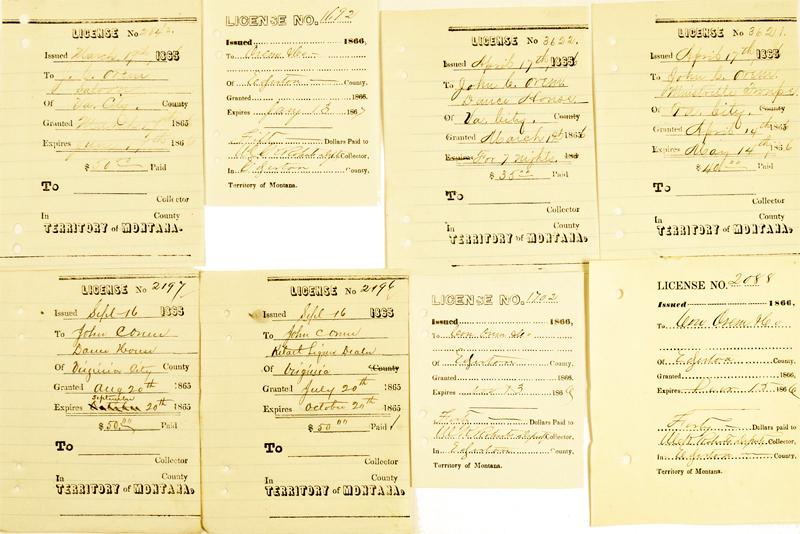 LICENSE No 2642
Issued March 19th, 1865
To J. C. Orem
Saloon
Of Va. City. County
Granted 1865
Expires 186
$50.00 Paid
To
Collector
In County
TERRITORY of MONTANA.
LICENSE NO. 1692
Issued 1866,
To Orem &Co
Of Edgerton County.
Granted 1866.
Expires 13 1867
Fifty Dollars Paid to
Collector,
In Edgerton County,
Territory of Montana.
LICENSE No 3622.
Issued April 17th, 1866
To John C. Orem
Dance House
Of Va. City. County
Granted March 1st 1866
Expires For 7 Nights. 186
$35.00 Paid
To
Collector
In County
TERRITORY of MONTANA.
LICENSE No 3621.
Issued April 17th, 1866
To John C. Orem.
Of Va. City. County
Granted April 14th 1866
Expires May 14th 1866
$40.00 Paid
To
Collector
In County
TERRITORY of MONTANA.
LICENSE No 2197
Issued Sept-16 1865
To John C Orem
Dance House
Of Virginia City County
Granted Aug 20th 1865
September
Expires 20th 1865
$50.00 Paid
To
Collector
In County
TERRITORY of MONTANA.
LICENSE No 2196
Issued Sept-16 1865
To John C Orem
Retail Liquor Dealer
Of Virginia County
Granted July 20th 1865
Expires October 20th 1865
$50.00 Paid
To
Collector
In County
TERRITORY of MONTANA.
LICENSE NO. 1702
Issued 1866,
To Con Orem &Co
Of Edgerton County.
Granted 1866.
Expires 13 1866
Forty Dollars Paid to
Collector,
In Edgerton County,
Territory of Montana.
LICENSE NO. 2088
Issued 1866,
To Con Orem &Co
Of Edgerton County.
Granted 1866.
Expires 13 1866
Forty Dollars paid to
Collector,
In Edgerton County,
Territory of Montana.